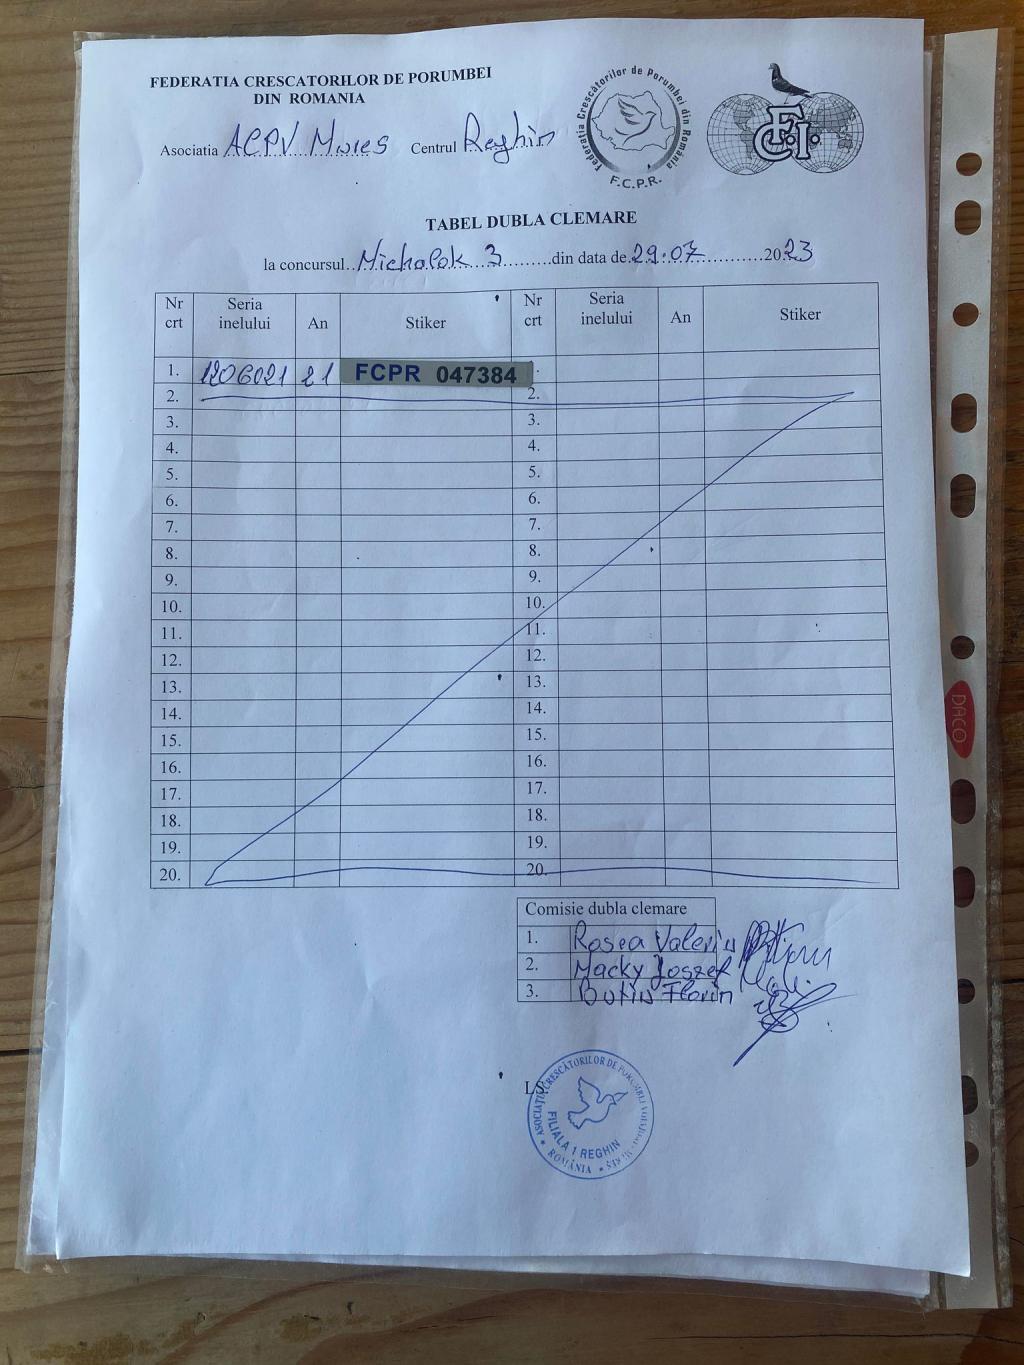 FEDERATIA CRESCATORILOR DE PORUMBEI
DIN ROMANIA
Asociatia ACPV Mures Centrul Reghin
Federatia Crescătorilor de Porumbei din România
F.C.P.R.
F.C.I.
TABEL DUBLA CLEMARE
la concursul..Michalok 3.........din data de.29.07..............2023
Nr crt Seria inelului An Stiker Nr crt Seria inelului An Stiker
1. 1206021 21 FCPR 047384
2. 2.
3. 3.
4. 4.
5. 5.
6. 6.
7. 7.
8. 8.
9. 9.
10. 10.
11. 11.
12. 12.
13. 13.
14. 14.
15. 15.
16. 16.
17. 17.
18. 18.
19. 19.
20. 20.
Comisie dubla clemare
1. Rosca Valeriu
2. Macky Joszef
3. Butiu Florin
L.S.
ASOCIAȚIA CRESCĂTORILOR DE PORUMBEI
FILIALA 1 REGHIN
ROMÂNIA
DACO